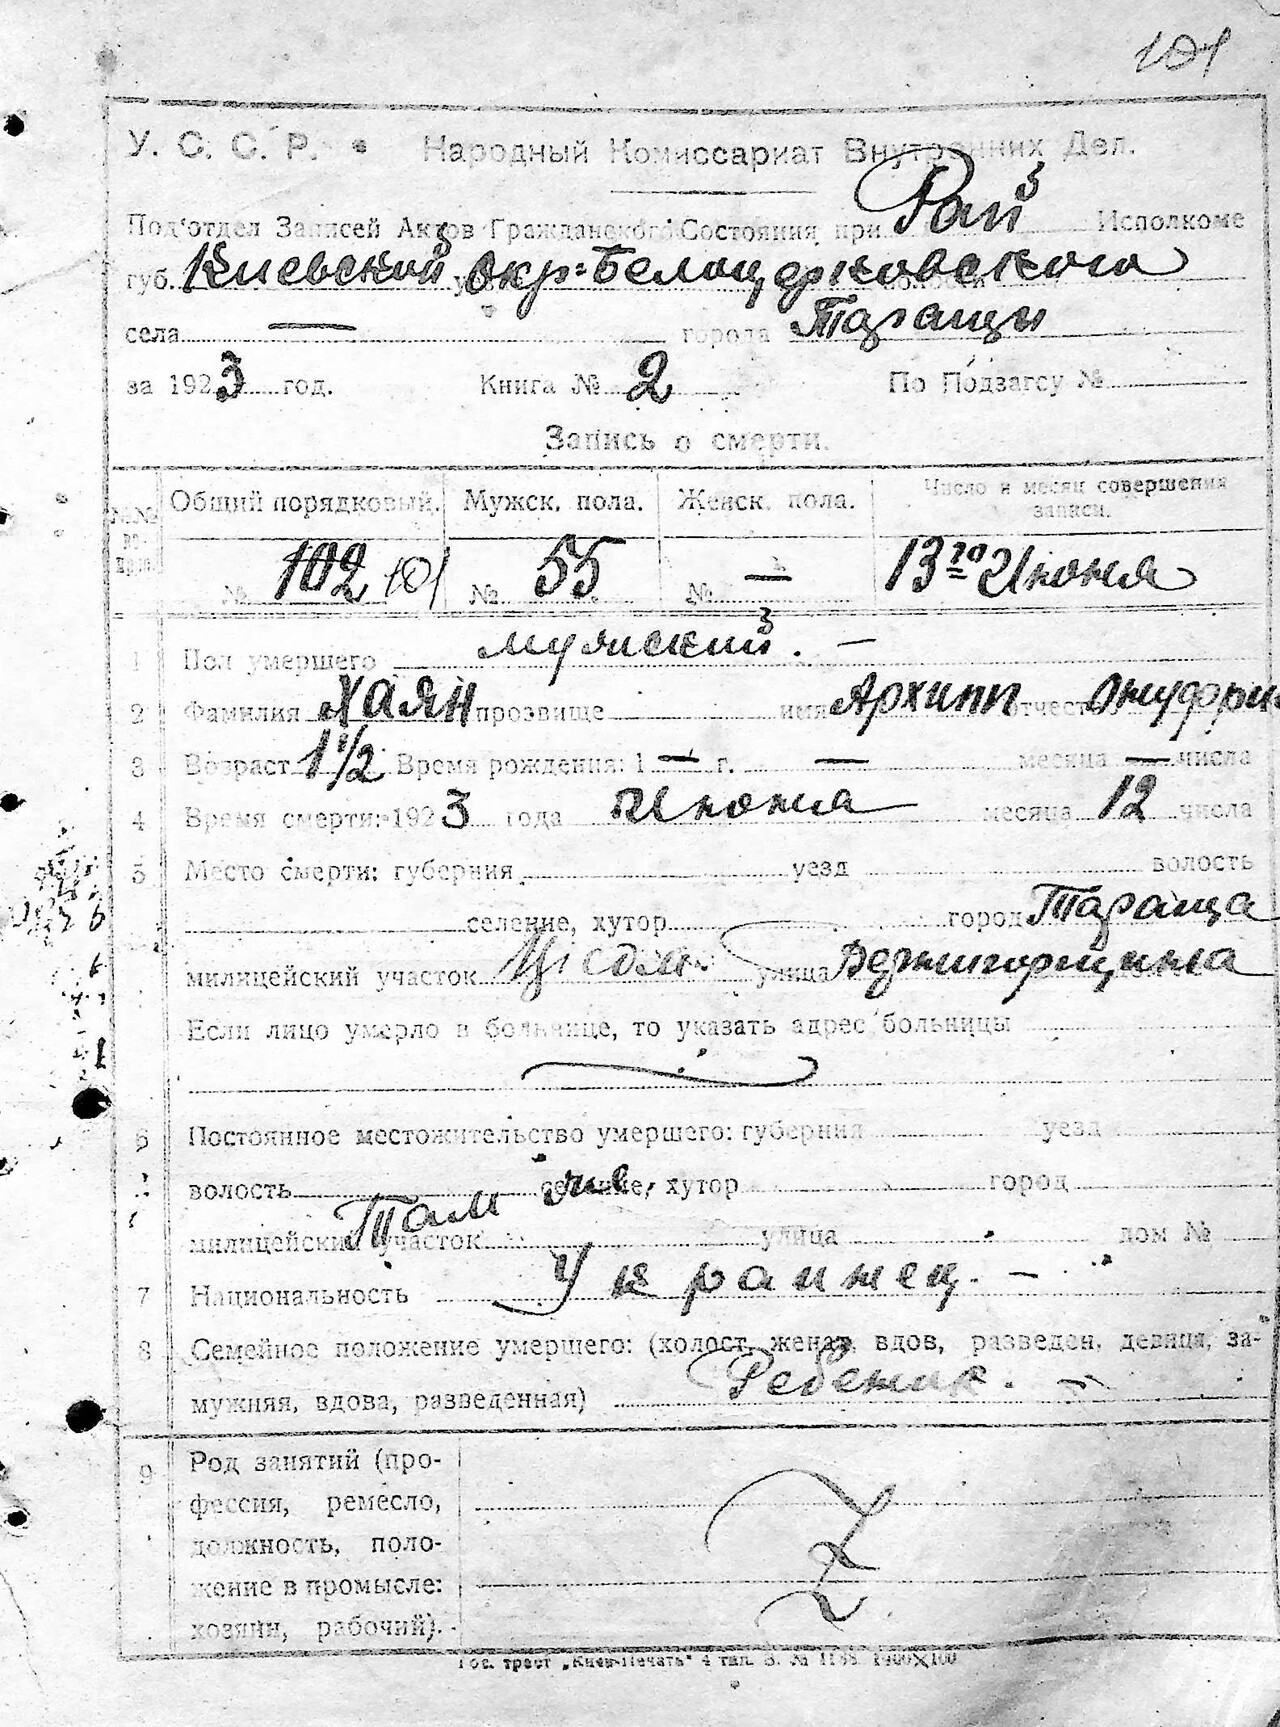 101
У. С. С. Р. • Народный Комиссариат Внутренних Дел.
Под'отдел Записей Актов Гражданского Состояния при Рай Исполкоме
губ. Киевской окр=Белоцерковского
села — города Таращи
за 1923 год. Книга № 2 По Подзагсу №
Запись о смерти.
Общий порядковый. Мужск. пола. Женск. пола. Число и месяц совершения записи.
№ 102 101 № 55 № — 13го Июня
1 Пол умершего мужский. —
2 Фамилия Хаян прозвище имя Архипп отчество Онуфри
3 Возраст 1 1/2 Время рождения: 1 — г. — месяца — числа
4 Время смерти: 1923 года Июня месяца 12 числа
5 Место смерти: губерния уезд волость
селение, хутор город Тараща
милицейский участок улица
Если лицо умерло в больнице, то указать адрес больницы
6 Постоянное местожительство умершего: губерния уезд
волость селение, хутор город
Там же
милицейский участок улица дом №
7 Национальность Украинец. —
8 Семейное положение умершего: (холост, женат, вдов, разведен, девица, за-
мужняя, вдова, разведенная) Ребенок. —
9 Род занятий (про-
фессия, ремесло,
должность, поло-
жение в промысле:
хозяин, рабочий).
Гос. трест „Киев-Печать" 4 тип. З. № 1188 1400×100